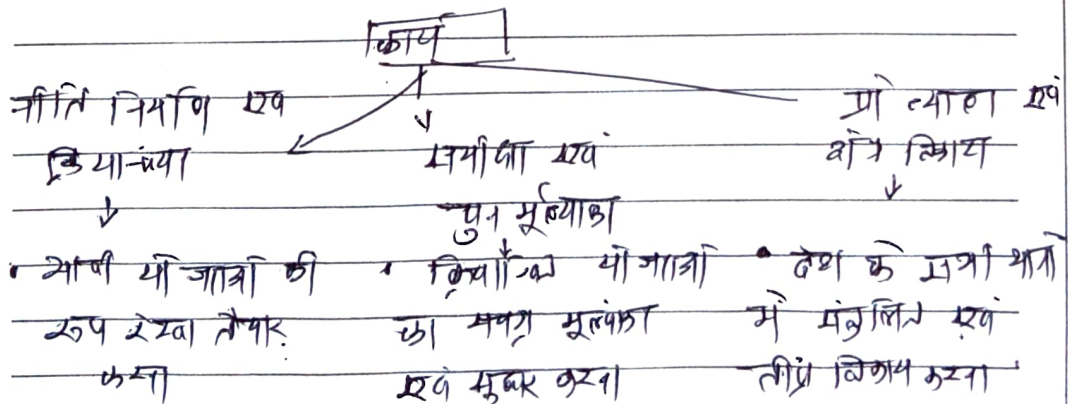 कार्य
नीति निर्माण एवं
क्रियान्वयन
↓
• भावी योजनाओं की
रूप रेखा तैयार
करना
समीक्षा एवं
पुन मूल्यांकन
• क्रियान्वित योजनाओं
का समग्र मूल्यांकन
एवं सुधार करना
प्रोत्साहन एवं
क्षेत्र विकास
↓
• देश के सभी भागों
में संतुलित एवं
तीव्र विकास करना